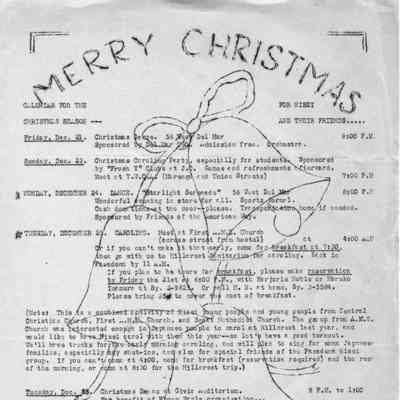 MERRY CHRISTMAS
CALENDAR FOR THE FOR NISEI
CHRISTMAS SEASON --- AND THEIR FRIENDS.....
Friday, Dec. 21. Christmas Dance. 56 West Del Mar 8:00 P.M.
Sponsored by Del Mar Admission free. Orchestra.
Sunday, Dec. 23. Christmas Caroling Party, especially for students. Sponsored
by "Frosh Y" Clubs at J.C. Games and refreshments afterward.
Meet at Y.W.C.A. (Marengo and Union Streets) 7:00 P.M.
MONDAY, DECEMBER 24. DANCE. "Starlight Serenade" 56 West Del Mar 8:00
Wonderful evening in store for all. Sports formal.
at the door--please. Transportation home if needed.
Sponsored by Friends of the American Way.
TUESDAY, DECEMBER 25. CAROLING. Meet at First A.M.E. Church
(across street from hostel) at 4:00 AM
Or if you can't make it that early, come for breakfast at 7:30,
then go with us to Hillcrest Sanitarium for caroling. Back in
Pasadena by 11 A.M.
If you plan to be there for breakfast, please make reservation
by Friday the 21st at 6:00 P.M., with Marjorie Noble or
or call H. B. at home, Sy. 2-1584.
Please bring to cover the cost of breakfast.
(Note: This is a project of Nisei young people and young people from Central
Christian Church, First A.M.E. Church, and Scott Methodist Church. The group from A.M.E.
Church was interested enough in Japanese people to carol at Hillcrest last year, and
would like to have Nisei carol with them this year--so let's have a good turnout.
We'll have trucks for the early morning caroling, and will plan to sing for some Japanese
families, especially any shut-ins, and also for special friends of the Pasadena Nisei
group. If you can't come at 4:00, come for breakfast (reservation required) and the rest
of the morning, or come at 8:00 for the Hillcrest trip.)
Tuesday, Dec. 25. Christmas Dance at Civic Auditorium. 8 P.M. to 1:00